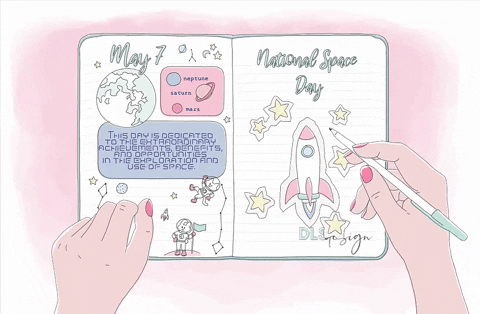 May 7
neptune
saturn
mars
THIS DAY IS DEDICATED
TO THE EXTRAORDINARY
ACHIEVEMENTS, BENEFITS,
AND OPPORTUNITIES
IN THE EXPLORATION AND
USE OF SPACE.
National Space
Day
DLSdesign